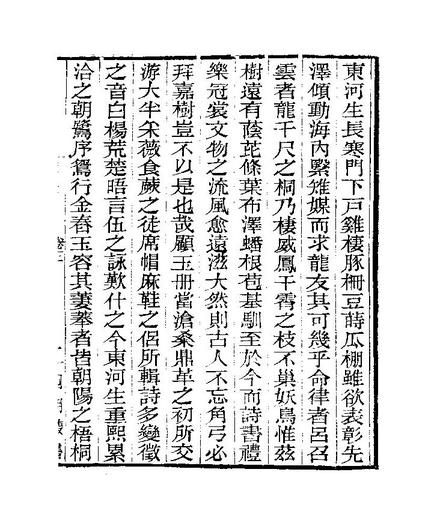 東河生長寒門下戸雞棲豚柵豆蒔瓜棚雖欲表彰先
澤傾動海內緊雉媒而求龍友其可幾乎命律者呂召
雲者龍千尺之桐乃棲威鳳千霄之枝不巢妖鳥惟茲
樹遠有蔭芘條葉布澤蟠根苞基馴至於今而詩書禮
樂冠裳文物之流風愈遠滋大然則古人不忘角弓必
拜嘉樹豈不以是也哉顧玉册當滄桑鼎革之初所交
游大半朵薇食蕨之徒席帽麻鞋之侶所輯詩多變徵
之音白楊荒楚晤言伍之詠歎什之今東河生重熙累
洽之朝鷺序鴛行金舂玉容其萋菶者皆朝陽之梧桐